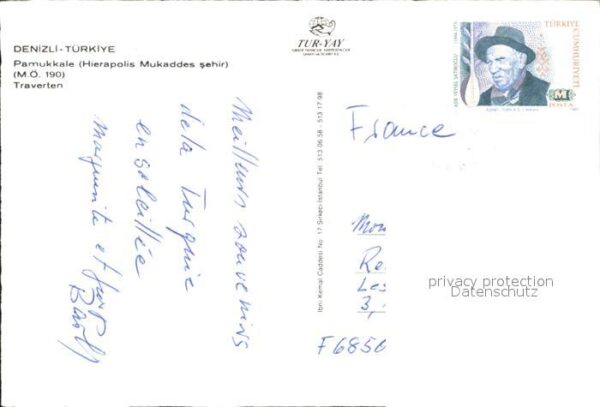 DENIZLI - TÜRKİYE
Pamukkale (Hierapolis Mukaddes şehir)
(M.Ö. 190)
Traverten
TUR-YAY
Meilleurs souvenirs
de la Turquie
ensoleillée
Marguerite et
İbni Kemal Caddesi No: 17 Sirkeci-İstanbul Tel: 513 06 58 - 513 17 98
TÜRKİYE
CUMHURİYETİ
AŞIK VEYSEL ŞATIROĞLU
1894-1973
M
POSTA
France
Mon
Re
Les
3,
F6850
privacy protection
Datenschutz